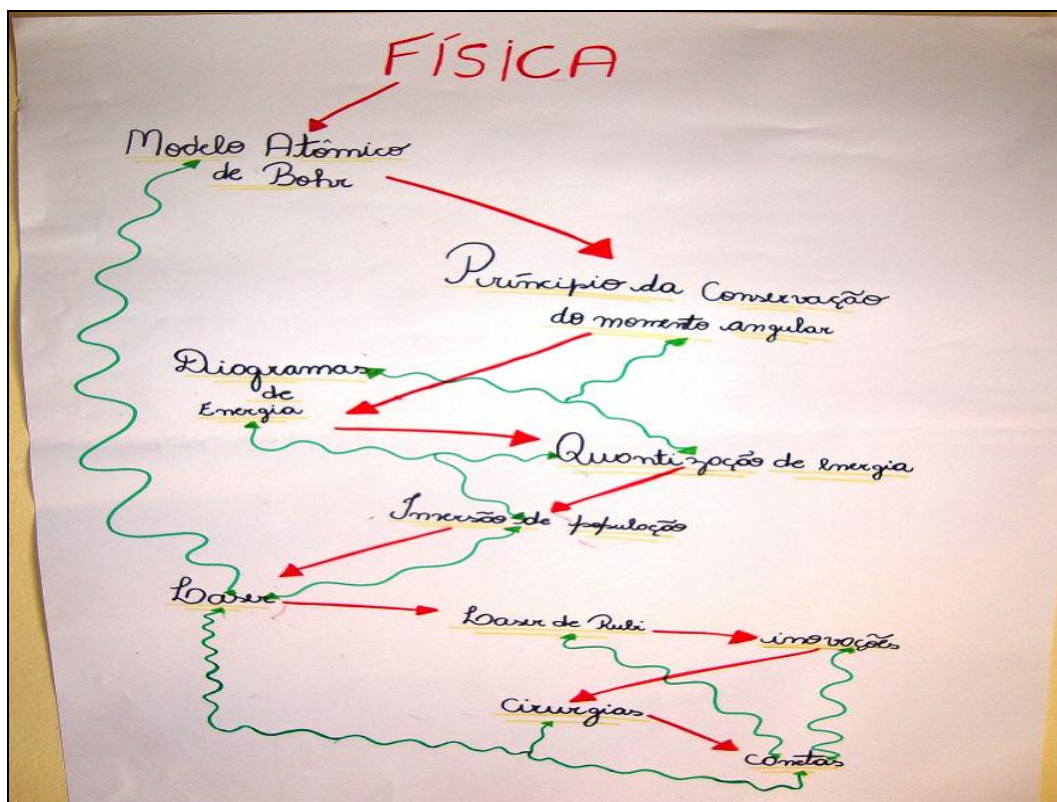 FÍSICA
Modelo Atômico
de Bohr
Princípio da Conservação
do momento angular
Diagramas
de
Energia
Quantização de energia
Inversão de população
Laser
Laser de Rubi
inovações
Cirurgias